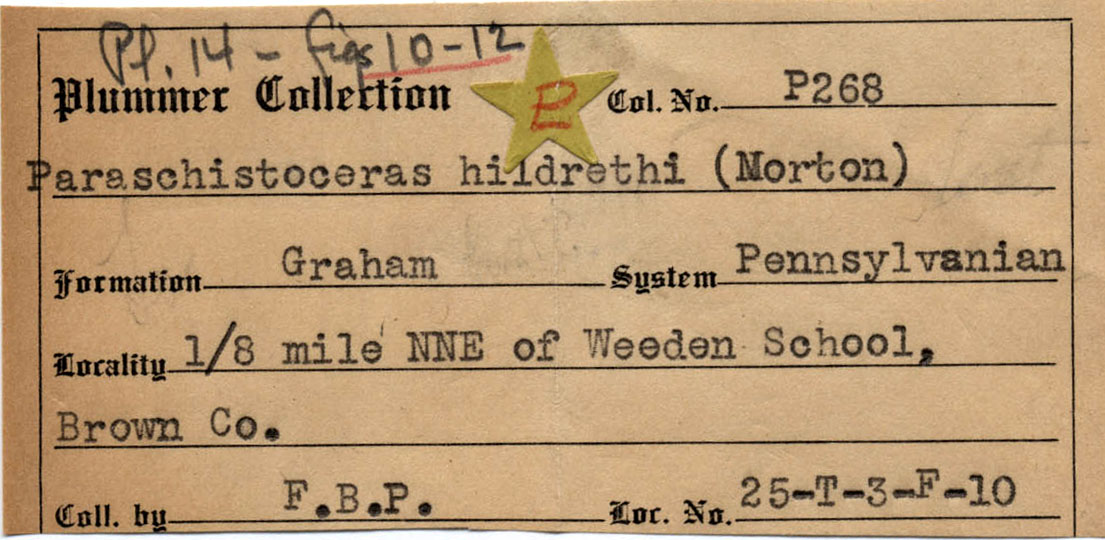 Pl. 14 - figs 10-12
Plummer Collection P Col. No. P268
Paraschistoceras hildrethi (Morton)
Formation Graham System Pennsylvanian
Locality 1/8 mile NNE of Weeden School,
Brown Co.
Coll. by F.B.P. Loc. No. 25-T-3-F-10